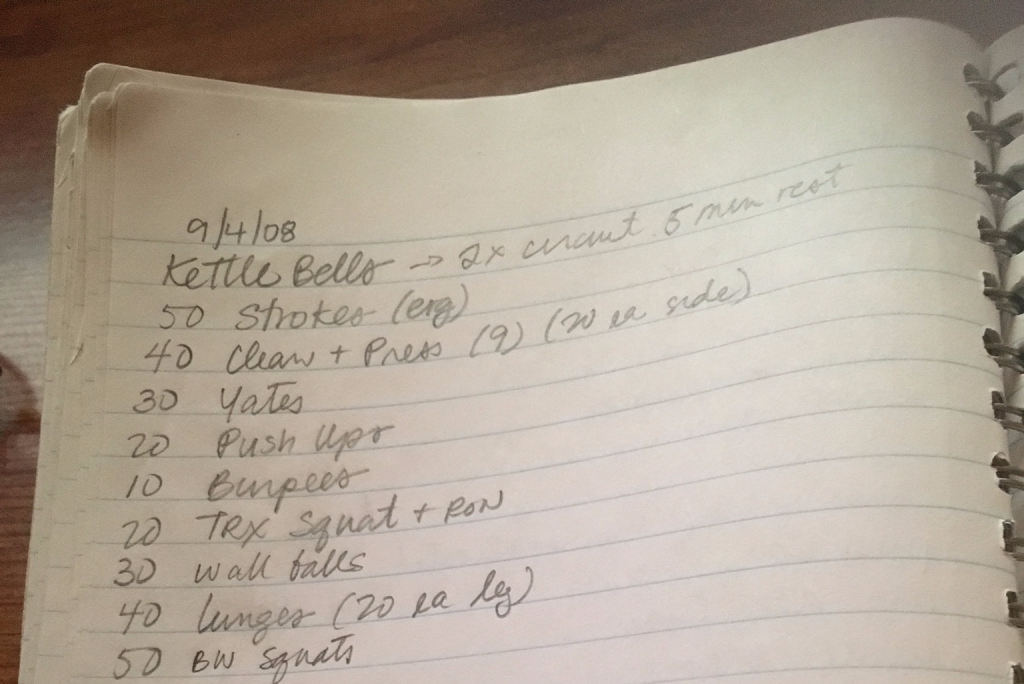 9/4/08
Kettle Bells → 2x circuit 5 min rest
50 Strokes (erg)
40 Clean + Press (9) (20 ea side)
30 Yates
20 Push Ups
10 Burpees
20 TRX Squat + Row
30 wall balls
40 lunges (20 ea leg)
50 BW Squats